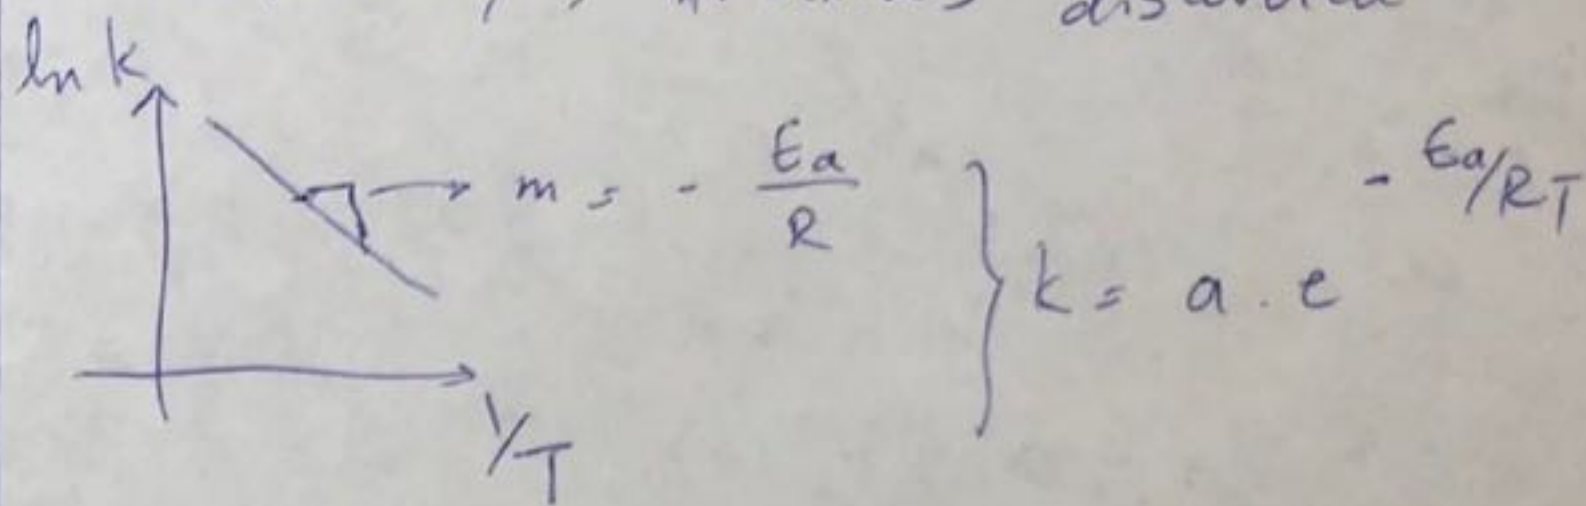 ln k
m = - Ea/R
k = a . e - Ea/RT
1/T